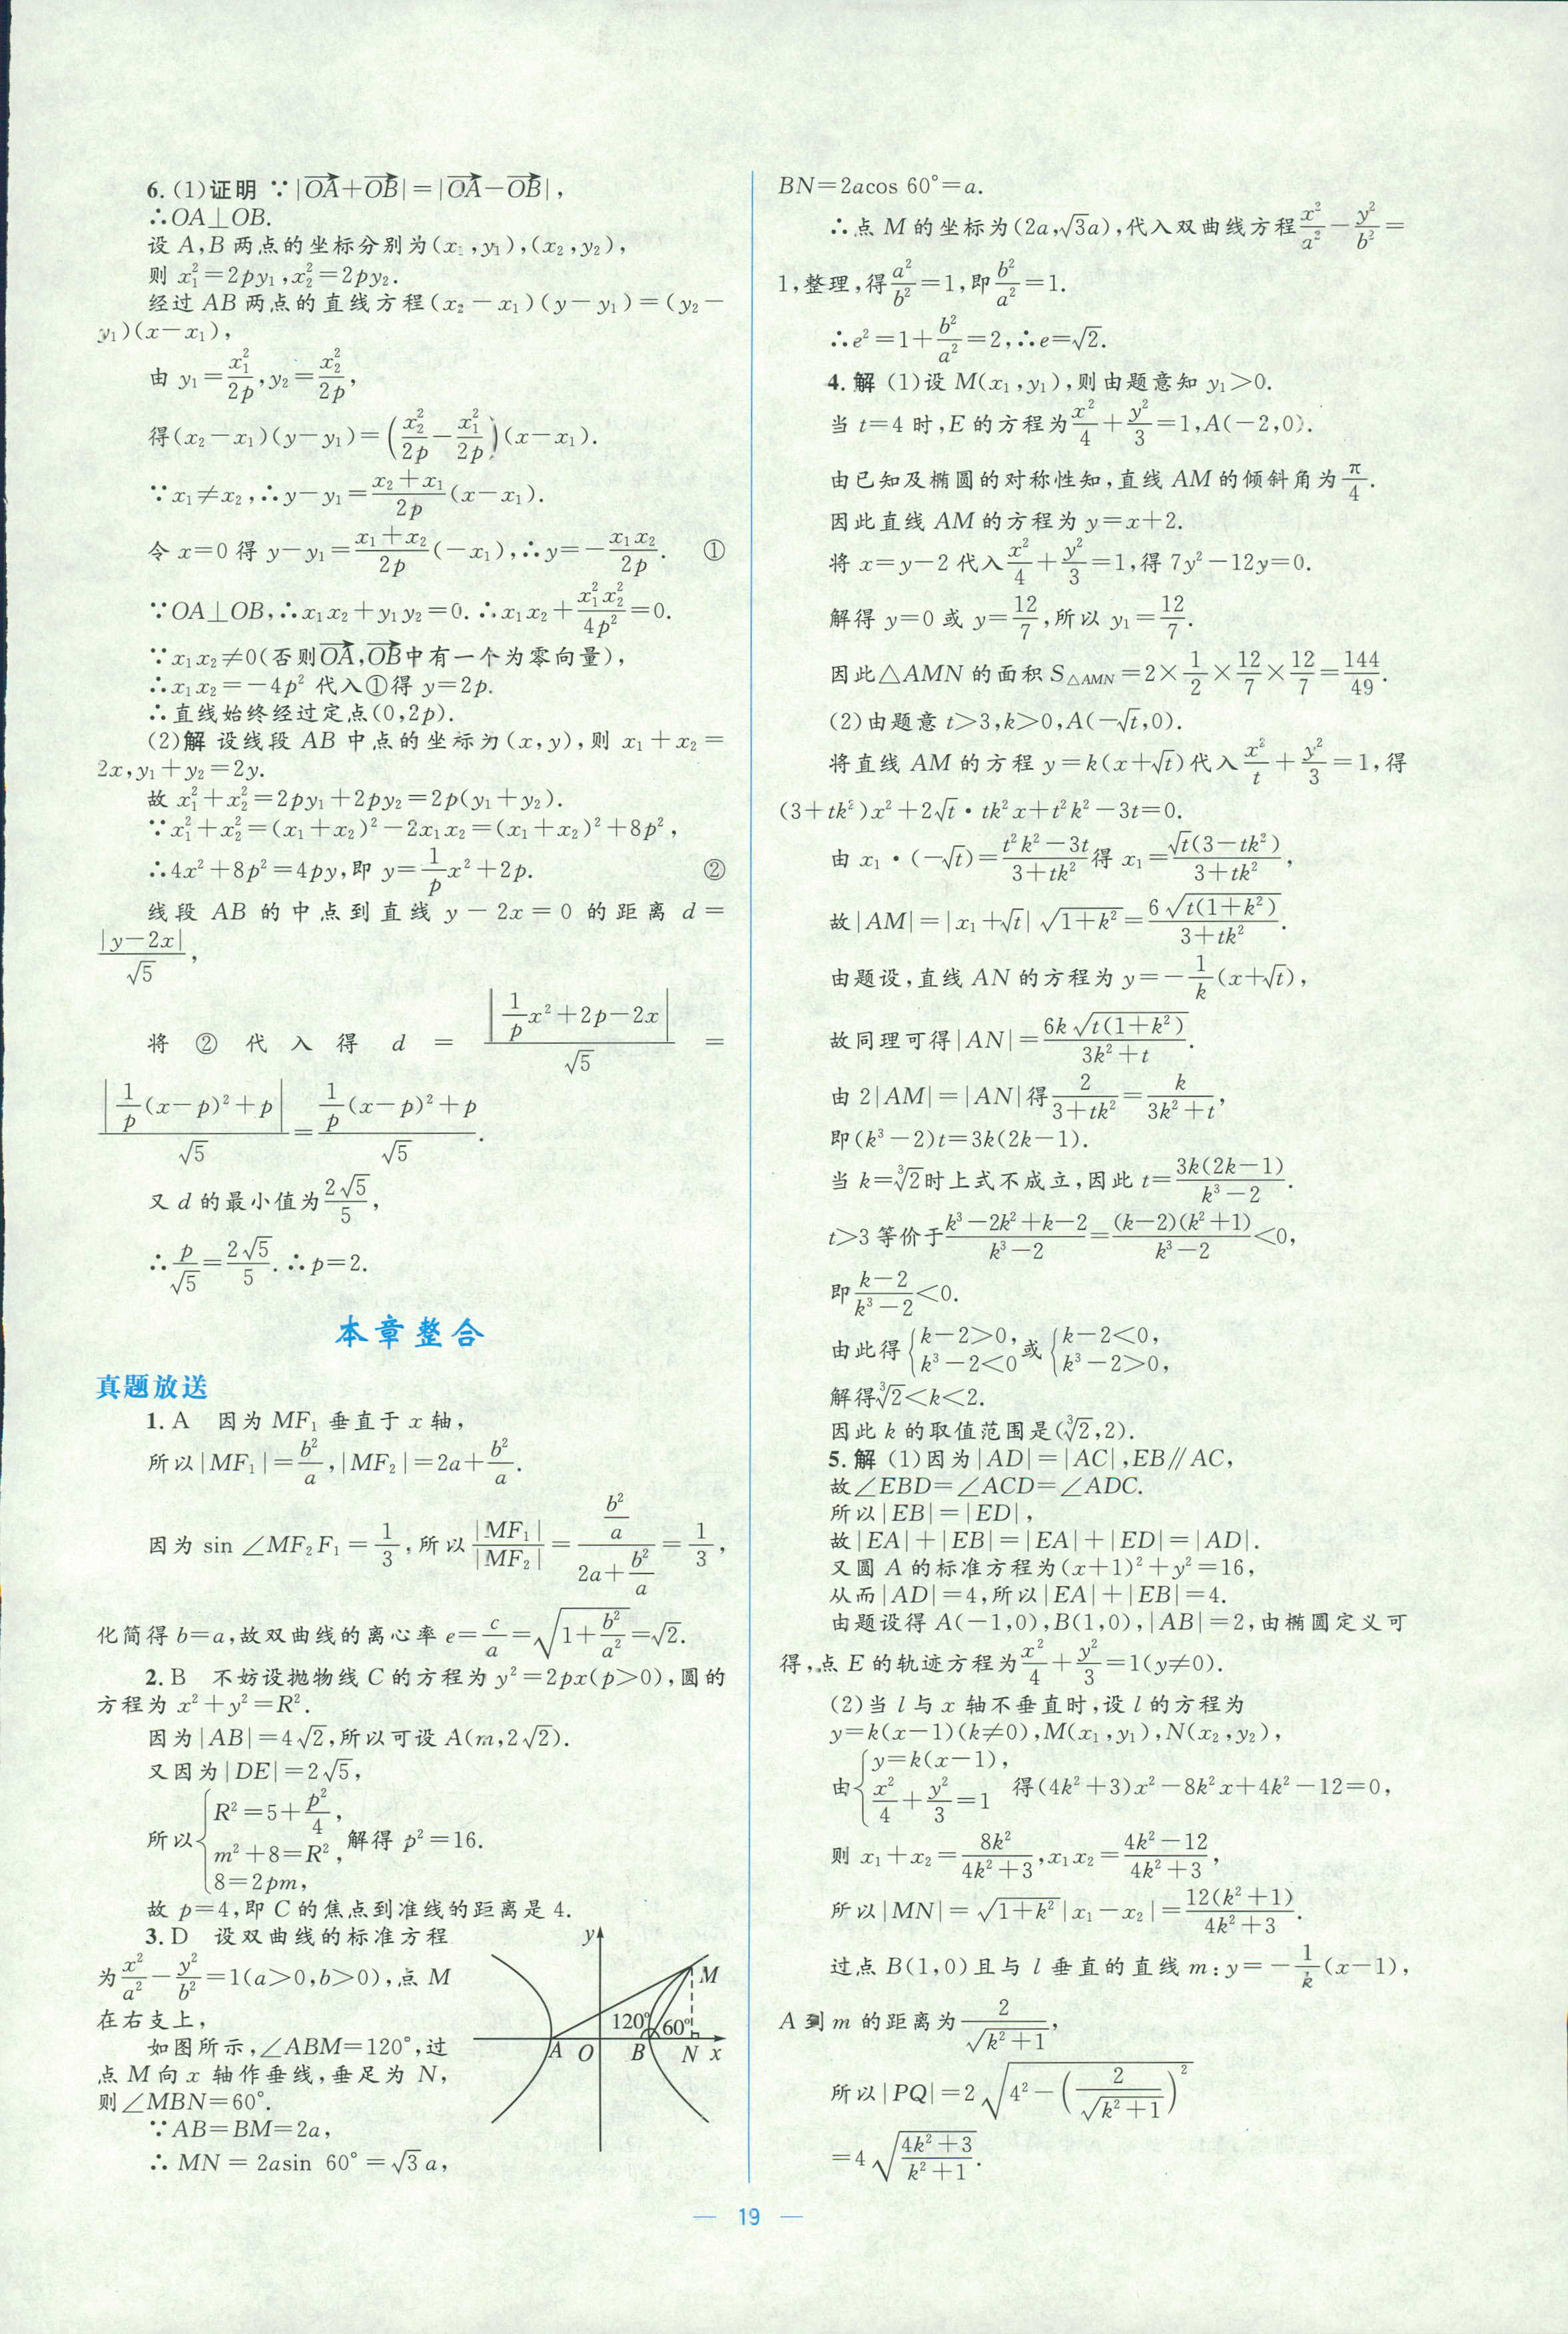 6. (1)证明 ∵|OA→+OB→|=|OA→−OB→|,
∴OA⊥OB.
设 A,B 两点的坐标分别为(x₁,y₁),(x₂,y₂),
则 x₁²=2py₁,x₂²=2py₂.
经过 AB 两点的直线方程(x₂−x₁)(y−y₁)=(y₂−
y₁)(x−x₁),
由 y₁=x₁²/2p,y₂=x₂²/2p,
得(x₂−x₁)(y−y₁)=(x₂²/2p−x₁²/2p)(x−x₁).
∵x₁≠x₂,∴y−y₁=(x₂+x₁)/2p(x−x₁).
令 x=0 得 y−y₁=(x₁+x₂)/2p(−x₁),∴y=−x₁x₂/2p. ①
∵OA⊥OB,∴x₁x₂+y₁y₂=0.∴x₁x₂+x₁²x₂²/4p²=0.
∵x₁x₂≠0(否则OA→,OB→中有一个为零向量),
∴x₁x₂=−4p² 代入①得 y=2p.
∴直线始终经过定点(0,2p).
(2)解 设线段 AB 中点的坐标为(x,y),则 x₁+x₂=
2x,y₁+y₂=2y.
故 x₁²+x₂²=2py₁+2py₂=2p(y₁+y₂).
∵x₁²+x₂²=(x₁+x₂)²−2x₁x₂=(x₁+x₂)²+8p²,
∴4x²+8p²=4py,即 y=1/p x²+2p. ②
线段 AB 的中点到直线 y−2x=0 的距离 d=
|y−2x|/√5,
将 ② 代入得 d=|1/p x²+2p−2x|/√5=
|1/p(x−p)²+p|/√5=(1/p(x−p)²+p)/√5.
又 d 的最小值为2√5/5,
∴p/√5=2√5/5.∴p=2.
本章整合
真题放送
1. A 因为 MF₁ 垂直于 x 轴,
所以|MF₁|=b²/a,|MF₂|=2a+b²/a.
因为 sin ∠MF₂F₁=1/3,所以|MF₁|/|MF₂|=(b²/a)/(2a+b²/a)=1/3,
化简得 b=a,故双曲线的离心率 e=c/a=√(1+b²/a²)=√2.
2. B 不妨设抛物线 C 的方程为 y²=2px(p>0),圆的
方程为 x²+y²=R².
因为|AB|=4√2,所以可设 A(m,2√2).
又因为|DE|=2√5,
所以{R²=5+p²/4,
m²+8=R²,
8=2pm, 解得 p²=16.
故 p=4,即 C 的焦点到准线的距离是 4.
3. D 设双曲线的标准方程
为x²/a²−y²/b²=1(a>0,b>0),点 M
在右支上,
如图所示,∠ABM=120°,过
点 M 向 x 轴作垂线,垂足为 N,
则∠MBN=60°.
∵AB=BM=2a,
∴MN=2asin 60°=√3a,
y
M
120° 60°
A O B N x
BN=2acos 60°=a.
∴点 M 的坐标为(2a,√3a),代入双曲线方程x²/a²−y²/b²=
1,整理,得a²/b²=1,即b²/a²=1.
∴e²=1+b²/a²=2,∴e=√2.
4. 解 (1)设 M(x₁,y₁),则由题意知 y₁>0.
当 t=4 时,E 的方程为x²/4+y²/3=1,A(−2,0).
由已知及椭圆的对称性知,直线 AM 的倾斜角为π/4.
因此直线 AM 的方程为 y=x+2.
将 x=y−2 代入x²/4+y²/3=1,得 7y²−12y=0.
解得 y=0 或 y=12/7,所以 y₁=12/7.
因此△AMN 的面积 S△AMN=2×1/2×12/7×12/7=144/49.
(2)由题意 t>3,k>0,A(−√t,0).
将直线 AM 的方程 y=k(x+√t)代入x²/t+y²/3=1,得
(3+tk²)x²+2√t·tk²x+t²k²−3t=0.
由 x₁·(−√t)=(t²k²−3t)/(3+tk²)得 x₁=√t(3−tk²)/(3+tk²),
故|AM|=|x₁+√t|√(1+k²)=6√(t(1+k²))/(3+tk²).
由题设,直线 AN 的方程为 y=−1/k(x+√t),
故同理可得|AN|=6k√(t(1+k²))/(3k²+t).
由 2|AM|=|AN|得2/(3+tk²)=k/(3k²+t),
即(k³−2)t=3k(2k−1).
当 k=∛2时上式不成立,因此 t=3k(2k−1)/(k³−2).
t>3 等价于(k³−2k²+k−2)/(k³−2)=(k−2)(k²+1)/(k³−2)<0,
即(k−2)/(k³−2)<0.
由此得{k−2>0,
k³−2<0 或{k−2<0,
k³−2>0,
解得∛2<k<2.
因此 k 的取值范围是(∛2,2).
5. 解 (1)因为|AD|=|AC|,EB∥AC,
故∠EBD=∠ACD=∠ADC.
所以|EB|=|ED|,
故|EA|+|EB|=|EA|+|ED|=|AD|.
又圆 A 的标准方程为(x+1)²+y²=16,
从而|AD|=4,所以|EA|+|EB|=4.
由题设得 A(−1,0),B(1,0),|AB|=2,由椭圆定义可
得,点 E 的轨迹方程为x²/4+y²/3=1(y≠0).
(2)当 l 与 x 轴不垂直时,设 l 的方程为
y=k(x−1)(k≠0),M(x₁,y₁),N(x₂,y₂),
由{y=k(x−1),
x²/4+y²/3=1 得(4k²+3)x²−8k²x+4k²−12=0,
则 x₁+x₂=8k²/(4k²+3),x₁x₂=(4k²−12)/(4k²+3),
所以|MN|=√(1+k²)|x₁−x₂|=12(k²+1)/(4k²+3).
过点 B(1,0)且与 l 垂直的直线 m:y=−1/k(x−1),
A 到 m 的距离为2/√(k²+1),
所以|PQ|=2√(4²−(2/√(k²+1))²)
=4√((4k²+3)/(k²+1)).
— 19 —